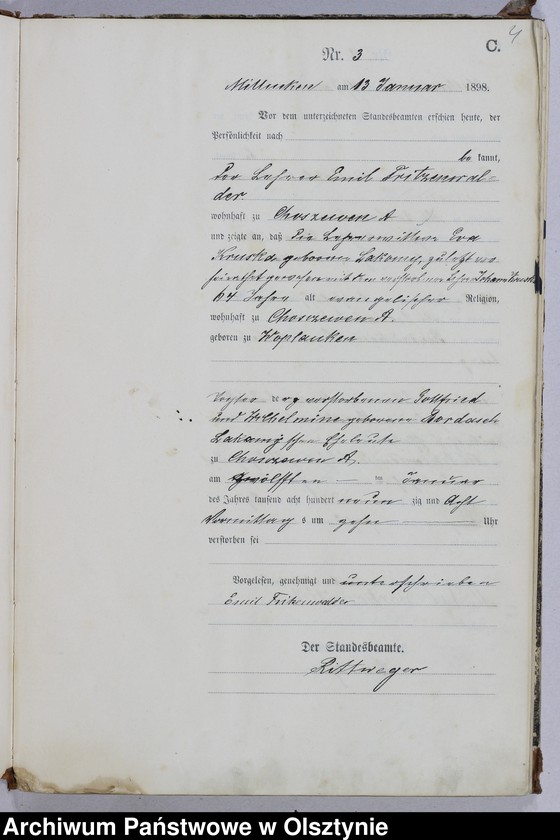 4
C.
Nr. 3
am 13 Januar 1898.
Vor dem unterzeichneten Standesbeamten erschien heute, der
Persönlichkeit nach
be kannt,
der Lehrer Emil Fritzenwal-
der
wohnhaft zu Choszewen A
und zeigte an, daß die Lehrerwittwe Eva
Kruska geborene Lakamy, zuletzt ver
heirathet gewesen mit dem verstorbenen Lehrer Johann Kruska
64 Jahre alt evangelischer Religion,
wohnhaft zu Choszewen A.
geboren zu Woplauken
Tochter der verstorbenen Gottfried
und Wilhelmine geborene Bordasch
Lakamy'schen Eheleute
zu Choszewen A,
am zwölften ten Januar
des Jahres tausend acht hundert neun zig und Acht
Vormittag s um zehn Uhr
verstorben sei
Vorgelesen, genehmigt und unterschrieben
Emil Fritzenwalder
Der Standesbeamte.
Rittweger
Archiwum Państwowe w Olsztynie